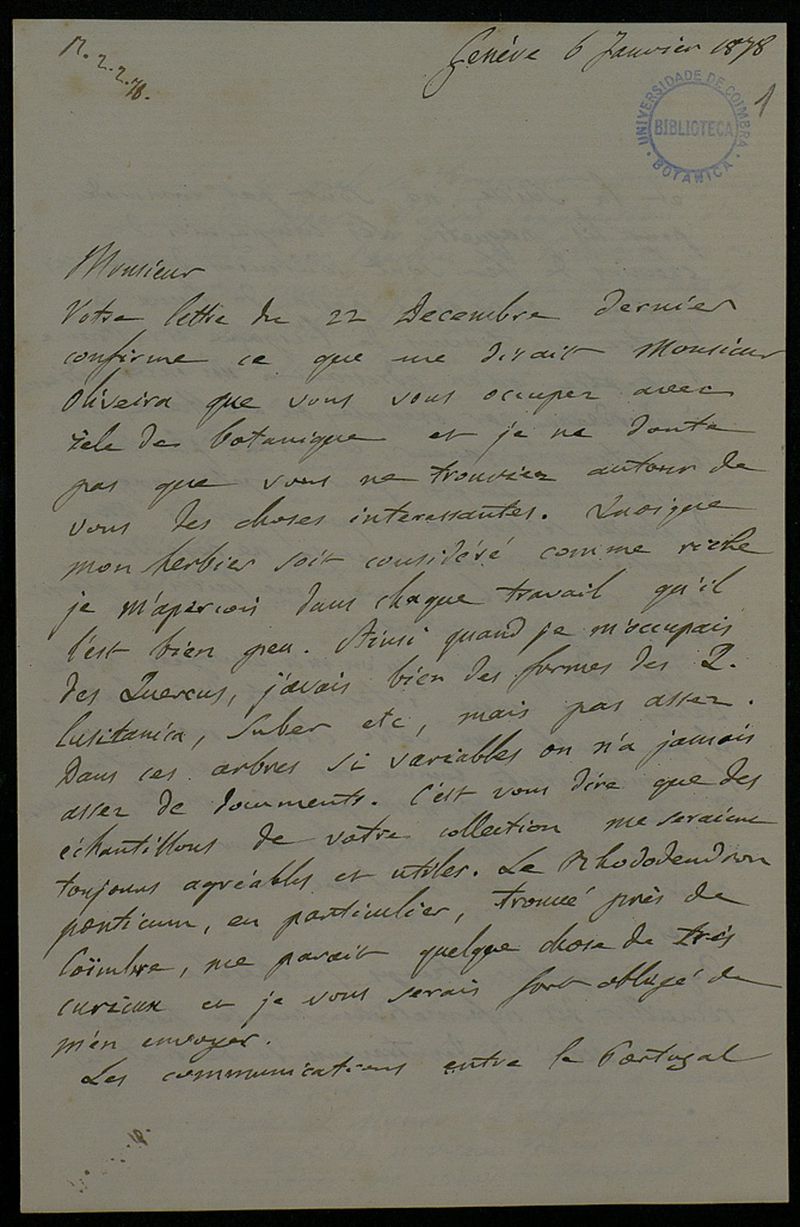 R. 2.2.78.
Genève 6 Janvier 1878
1
UNIVERSIDADE DE COIMBRA
BIBLIOTECA
BOTANICA
Monsieur
Votre lettre du 22 Decembre dernier
confirme ce que me disait Monsieur
Oliveira que vous vous occupez avec
zèle de botanique et je ne doute
pas que vous ne trouviez autour de
vous des choses interessantes. Quoique
mon herbier soit considéré comme riche
je m'aperçois dans chaque travail qu'il
l'est bien peu. Ainsi quand je m'occupais
des Quercus, j'avais bien des formes des Q.
lusitanica, Suber etc, mais pas assez.
Dans ces arbres si variables on n'a jamais
assez de documents. C'est vous dire que des
échantillons de votre collection me seraient
toujours agréables et utiles. Le Rhododendron
ponticum, en particulier, trouvé près de
Coïmbre, me parait quelque chose de très
curieux et je vous serais fort obligé de
m'en envoyer.
Les communications entre le Portugal